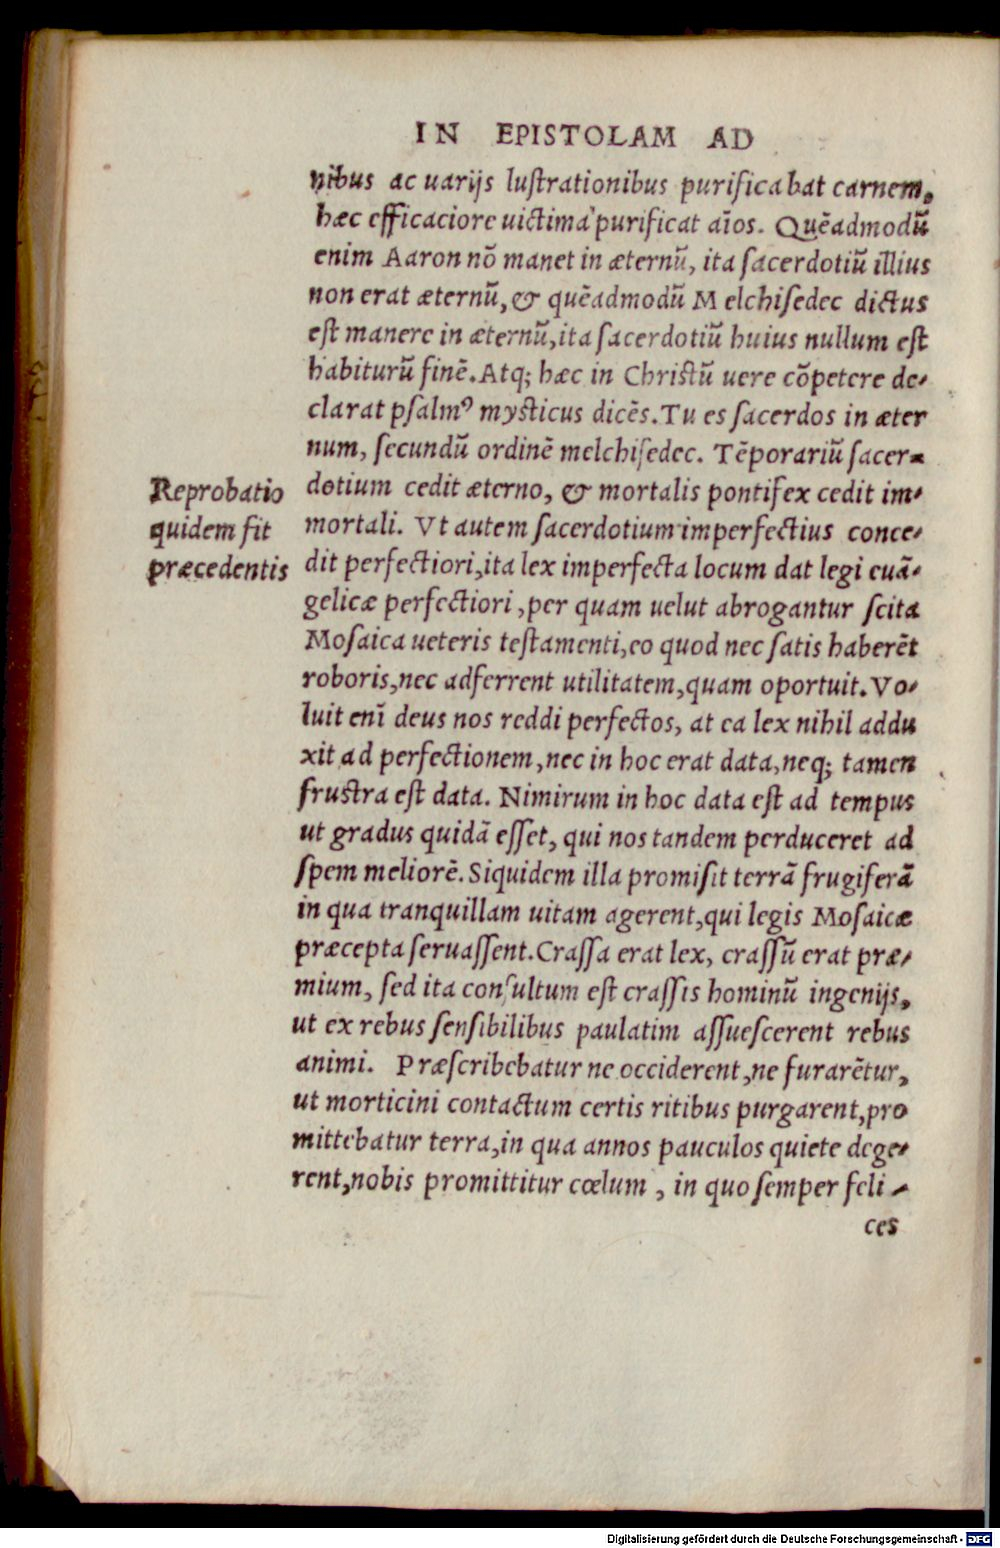 IN EPISTOLAM AD
nibus ac uarijs lustrationibus purificabat carnem,
hæc efficaciore uictima purificat aīos. Quēadmodū
enim Aaron nō manet in æternū, ita sacerdotiū illius
non erat æternū, & quēadmodū Melchisedec dictus
est manere in æternū, ita sacerdotiū huius nullum est
habiturū finē. Atq; hæc in Christū uere cōpetere de-
clarat psalmꝰ mysticus dicēs. Tu es sacerdos in æter
num, secundū ordinē melchisedec. Tēporariū sacer-
dotium cedit æterno, & mortalis pontifex cedit im-
mortali. Vt autem sacerdotium imperfectius conce-
dit perfectiori, ita lex imperfecta locum dat legi euā-
gelicæ perfectiori, per quam uelut abrogantur scita
Mosaica ueteris testamenti, eo quod nec satis haberēt
roboris, nec adferrent utilitatem, quam oportuit. Vo-
luit enī deus nos reddi perfectos, at ea lex nihil addu
xit ad perfectionem, nec in hoc erat data, neq; tamen
frustra est data. Nimirum in hoc data est ad tempus
ut gradus quidā esset, qui nos tandem perduceret ad
spem meliorē. Siquidem illa promisit terrā frugiferā
in qua tranquillam uitam agerent, qui legis Mosaicæ
præcepta seruassent. Crassa erat lex, crassū erat præ-
mium, sed ita consultum est crassis hominū ingenijs,
ut ex rebus sensibilibus paulatim assuescerent rebus
animi. Præscribebatur ne occiderent, ne furarētur,
ut morticini contactum certis ritibus purgarent, pro
mittebatur terra, in qua annos pauculos quiete dege-
rent, nobis promittitur cœlum, in quo semper feli-
ces
Reprobatio
quidem fit
præcedentis
Digitalisierung gefördert durch die Deutsche Forschungsgemeinschaft - DFG